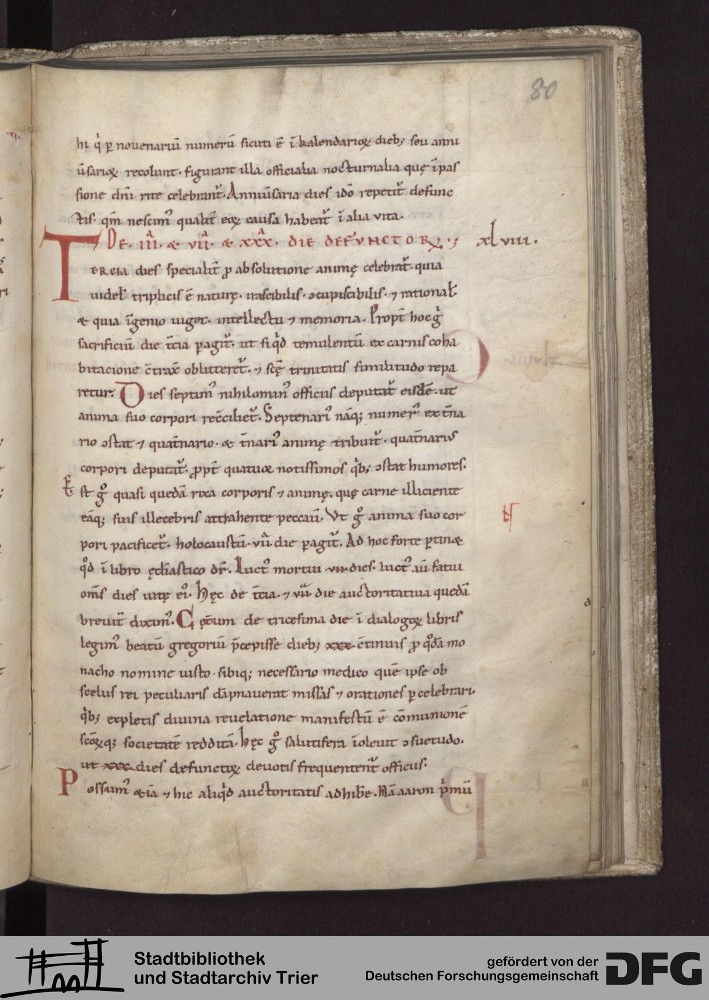 80
hi q̇ ꝑ nouenariū numerū sicuti ē ī kalendarioꝝ dieb; seu anni
ūsarioꝝ recolunt. figurant illa officialia nocturnalia quę īpas
sione dn̄i rite celebrant᷑. Anniūsaria dies idō repetit᷑ defunc
tis. qm̄ nescim᷒ qualit̄ eoꝝ causa habeat᷑ ī alia vita.
DE. III. & VII. & XXX. DIE DEFVNCTORꝝ. xlviii.
TERCIA dies specialit̄ ꝓ absolutione animę celebrat᷑. quia
uidel̄ triplicis ē naturę. irascibilis. ↄcupiscibilis. ⁊ rational̄.
& quia īgenio uiget. intellectu ⁊ memoria. Propt̄ hoc ḡ
sacrificiū die t̄cia pagit᷑. ut siq̇d temulentū ex carnis coha
bitacione c̄trax̄ obliteret᷑. ⁊ scę̄ trinitatis similitudo repa
retur. Dies septim᷒ nihilomin᷒ officiis deputat᷑ eisdē. ut
anima suo corpori recc̄iliet᷑. Septenari᷒ náq; numer᷒ ex t̄na
rio ↄstat ⁊ quat̄nario. & t̄nari᷒ animę tribuit᷑. quat̄nari᷒
corpori deputat᷑. ꝓpt̄ quatuor notissimos q̇b; ↄstat humores.
Est ḡ quasi quedā rixa corporis ⁊ animę. quę carne illiciente
eāq; suis illecebris attrahente peccauit. Vt ḡ anima suo cor
pori pacificet᷑. holocaustū. vii die pagit᷑. Ad hoc forte ꝑtinæ
q̇d ī libro ęcl̄iastico dr̄. Luct᷒ mortui vii. dies. luct᷒ aū fatui
om̄s dies uitę ei᷒. Hęc de t̄cia. ⁊ vii die auctoritatiua quedā
breuit̄ dixim᷒. Cęt̄um de tricesima die ī dialogoꝝ libris
legim᷒ beatū gregoriū p̄cepisse dieb; xxx c̄tinuis ꝓ q̇dā mo
nacho nomine iusto. sibiq; necessario medico quē ipse ob
scelus rei peculiaris dāpnauerat missas ⁊ orationes ꝑcelebrari.
q̇b; expletis diuina reuelatione manifestū ē cōmunionē
scōꝝq; societatē redditā. Hęc ḡ salutifera īoleuit ↄsuetudo.
ut xxx dies defunctoꝝ deuotis frequentent᷑ officiis.
Possum᷒ &iā ⁊ hic aliq̇d auctoritatis adhibē. Nā aaron p̓mū
Stadtbibliothek
und Stadtarchiv Trier
gefördert von der
Deutschen Forschungsgemeinschaft DFG